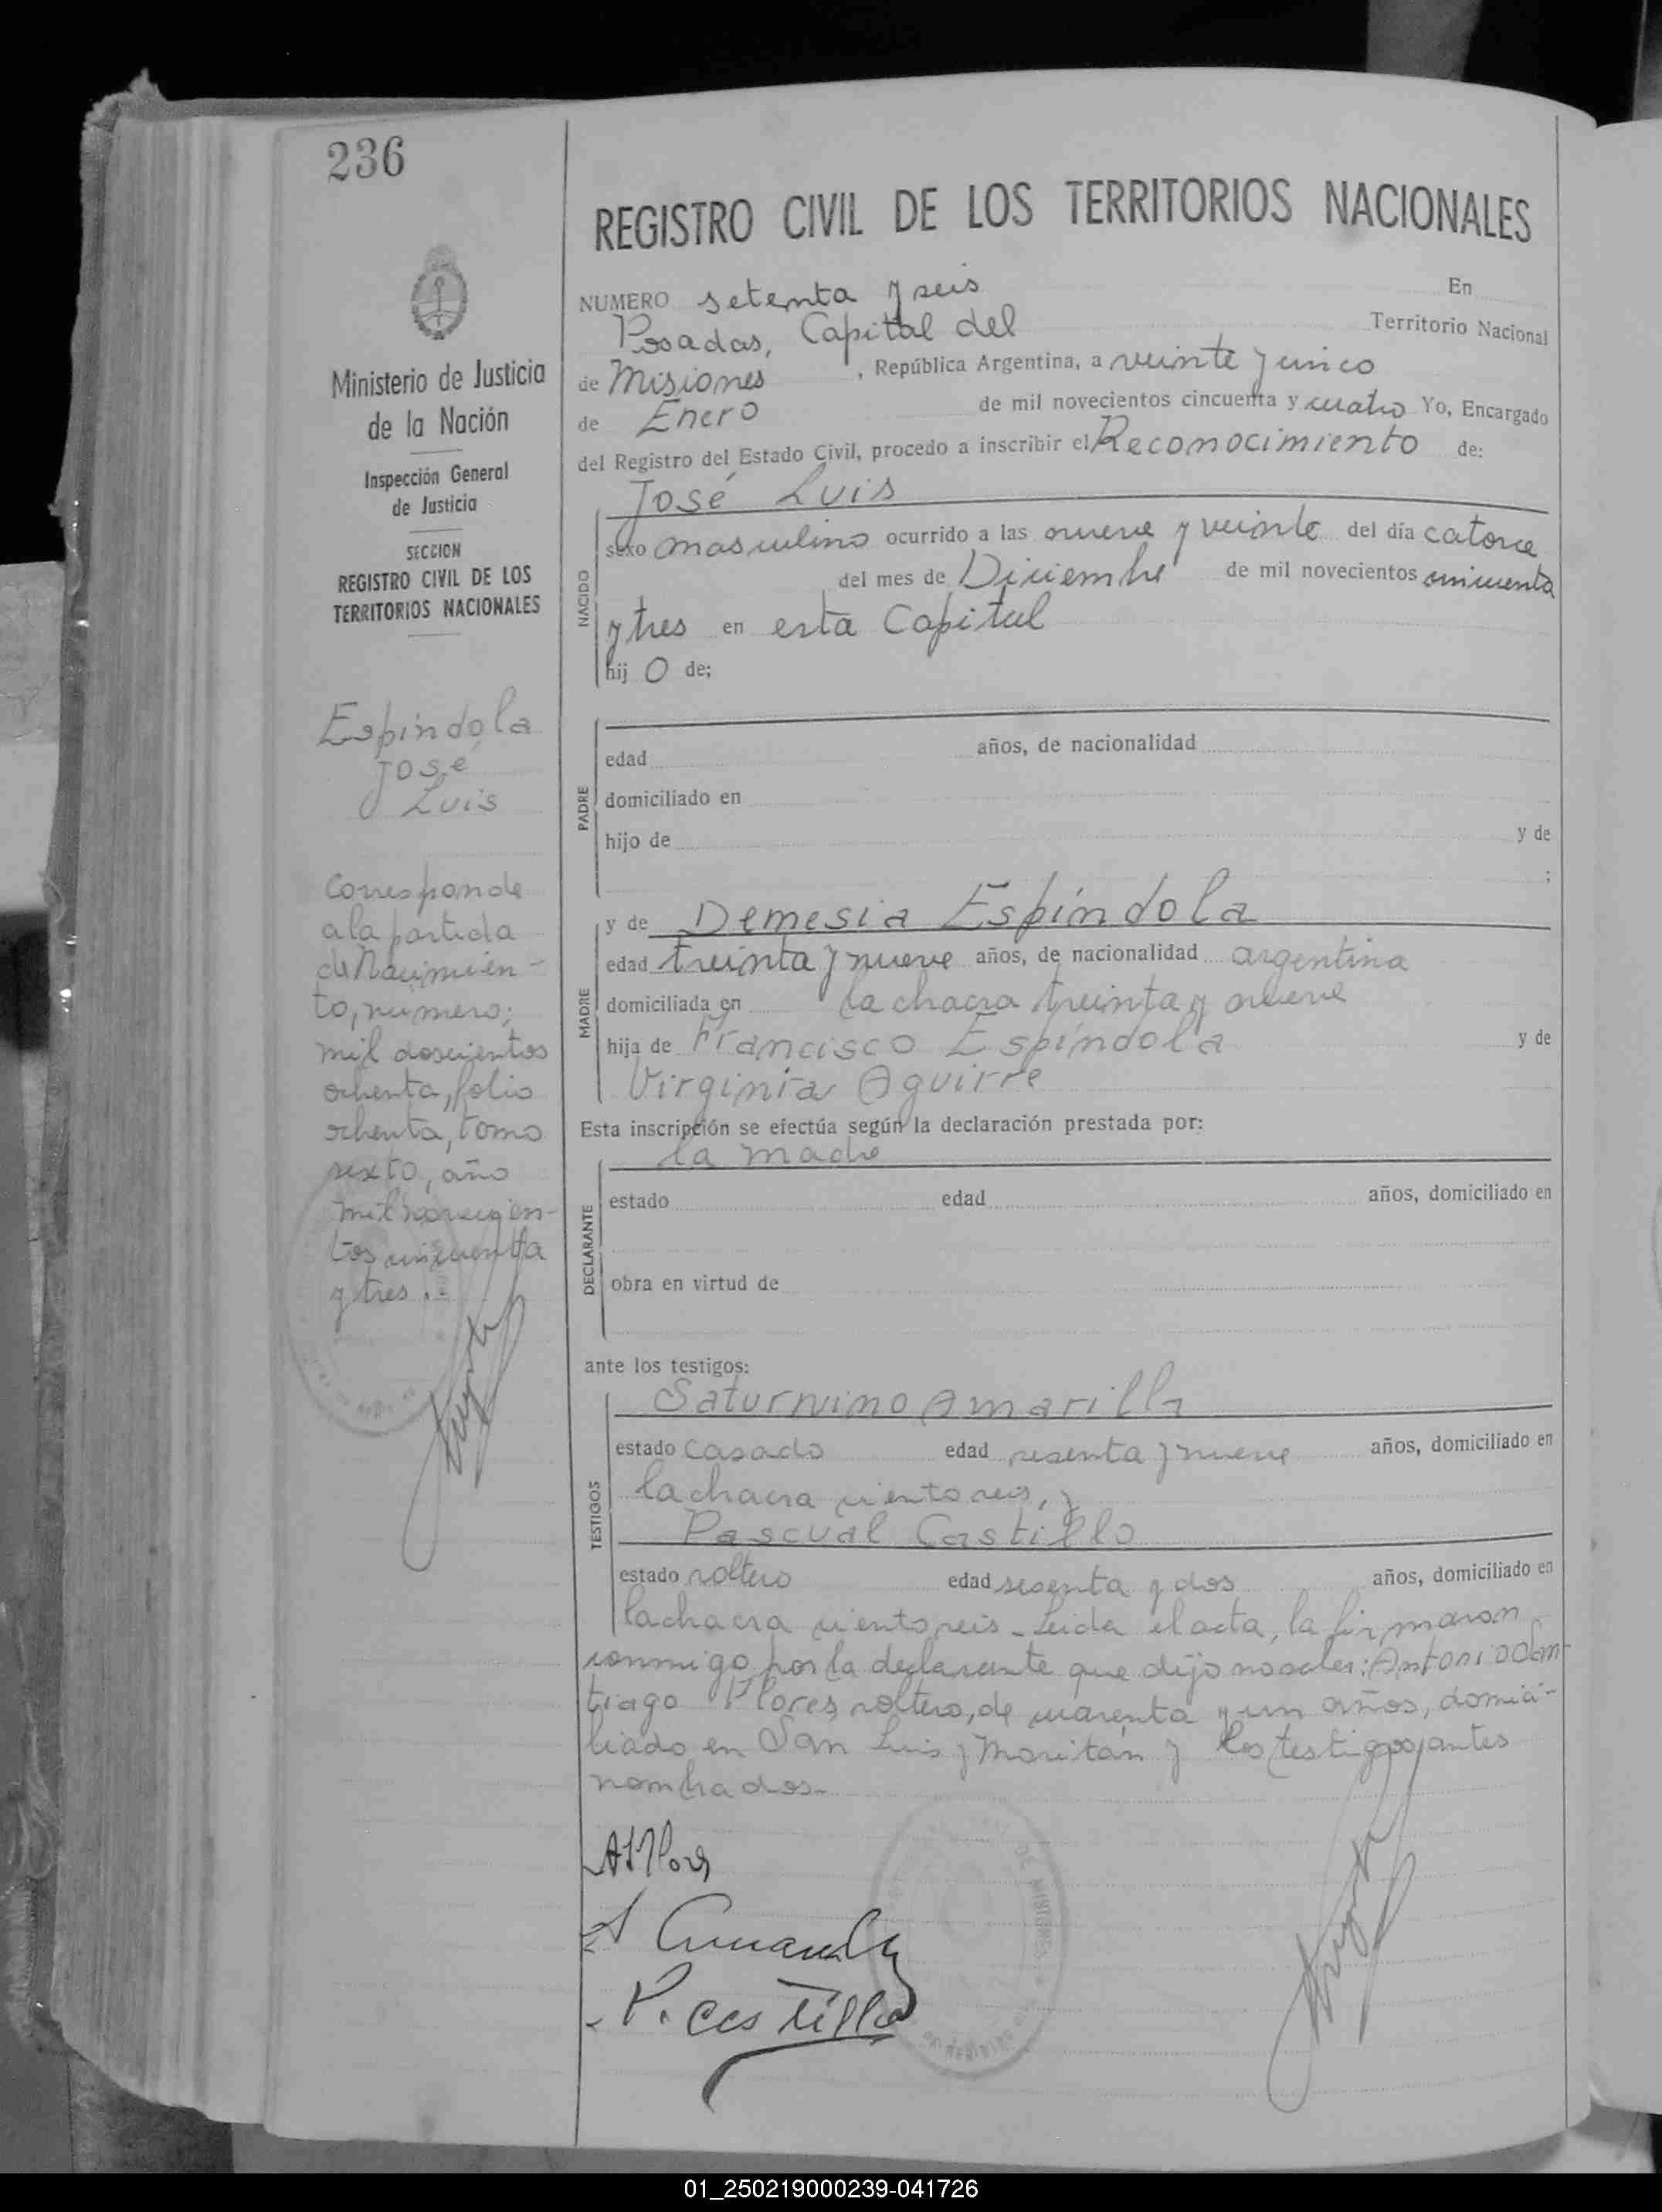 236
Ministerio de Justicia
de la Nación
Inspección General
de Justicia
SECCION
REGISTRO CIVIL DE LOS
TERRITORIOS NACIONALES
Espíndola
José
Luis
Corresponde
a la partida
de Nacimien-
to, número;
mil doscientos
ochenta, folio
ochenta, tomo
sexto, año
mil novecien-
tos cincuenta
y tres.-
REGISTRO CIVIL DE LOS TERRITORIOS NACIONALES
NUMERO setenta y seis En
Posadas, Capital del Territorio Nacional
de Misiones, República Argentina, a veinte y cinco
de Enero de mil novecientos cincuenta y cuatro Yo, Encargado
del Registro del Estado Civil, procedo a inscribir el Reconocimiento de:
José Luis
NACIDO
sexo masculino ocurrido a las nueve y veinte del día catorce
del mes de Diciembre de mil novecientos cincuenta
y tres en esta Capital
hij o de;
PADRE
edad años, de nacionalidad
domiciliado en
hijo de y de
;
MADRE
y de Demesia Espíndola
edad treinta y nueve años, de nacionalidad argentina
domiciliada en la chacra treinta y nueve
hija de Francisco Espíndola y de
Virginia Aguirre
Esta inscripción se efectúa según la declaración prestada por:
la madre
DECLARANTE
estado edad años, domiciliado en
obra en virtud de
ante los testigos:
TESTIGOS
Saturnino Amarilla
estado casado edad sesenta y nueve años, domiciliado en
la chacra ciento seis, y
Pascual Castillo
estado soltero edad sesenta y dos años, domiciliado en
la chacra ciento seis - Leida el acta, la firmaron
conmigo por la declarante que dijo no saber: Antonio San-
tiago Flores, soltero, de cuarenta y un años, domici-
liado en San Luis y Moritán y los testigos antes
nombrados-
A S Flores
S Amarilla
P. Castillo
DE MISIONES
01_250219000239-041726